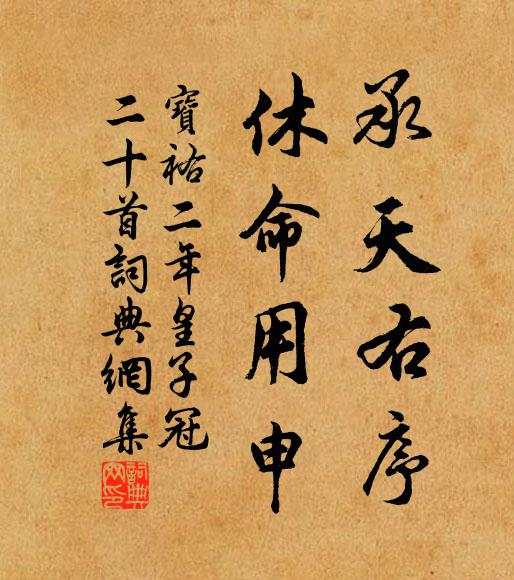 承天右序
休命用申
寶祐二年皇子冠
二十首詞典網集
詞典
网印